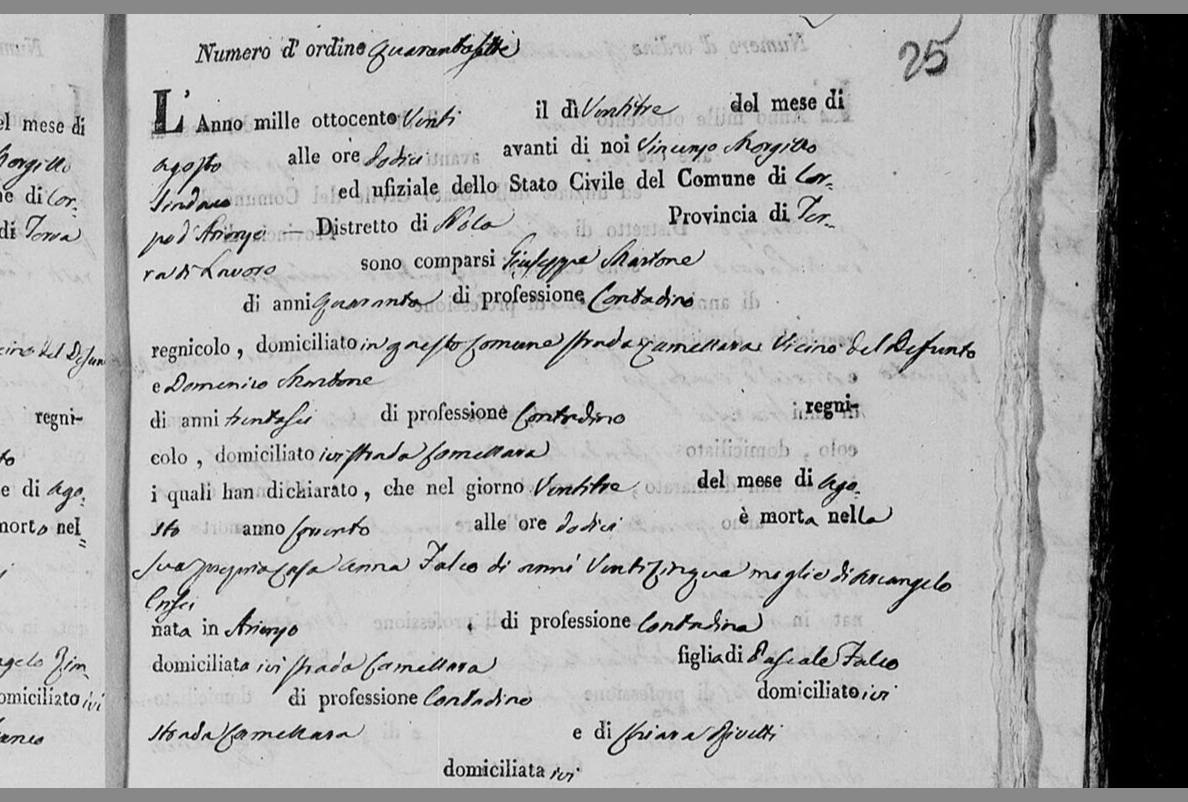 Numero d' ordine quarantasette
25
L' Anno mille ottocento Venti il dì Ventitre del mese di
agosto alle ore dodici avanti di noi Vincenzo Morgillo
Sindaco ed ufiziale dello Stato Civile del Comune di Cor-
po d' Arienzo — Distretto di Nola Provincia di Ter-
ra di Lavoro sono comparsi Giuseppe Martone
di anni quaranta di professione Contadino
regnicolo, domiciliato in questo Comune strada Camellara Vicino del Defunto
e Domenico Martone
di anni trentasei di professione Contradino regni-
colo, domiciliato ivi strada Camellara
i quali han dichiarato, che nel giorno Ventitre del mese di Ago-
sto anno corrente alle ore dodici è morta nella
sua propria Casa anna Falco di anni Venticinque moglie di Arcangelo
nata in Arienzo di professione Contadina
domiciliata ivi strada Camellara figlia di Pascale Falco
di professione Contadino domiciliato ivi
strada Camellara e di Chiara
domiciliata ivi
el mese di
Morgillo
e di Cor-
di Terra
cino del Defun
regni-
to
e di Ago-
morto nel
ngelo
omiciliato ivi